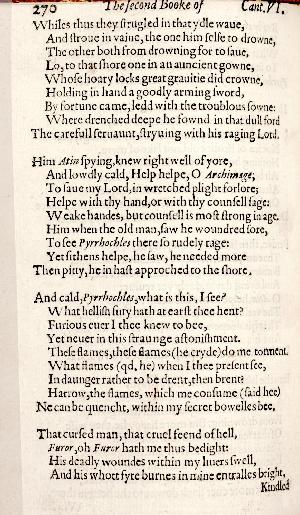 270 The second Booke of Cant. VI.
Whiles thus they strugled in that ydle waue,
And stroue in vaine, the one him selfe to drowne,
The other both from drowning for to saue,
Lo, to that shore one in an auncient gowne,
Whose hoary locks great grauitie did crowne,
Holding in hand a goodly arming sword,
By fortune came, ledd with the troublous sowne:
Where drenched deepe he fownd in that dull ford
The carefull seruaunt, stryuing with his raging Lord.
Him Atin spying, knew right well of yore,
And lowdly cald, Help helpe, O Archimage;
To saue my Lord, in wretched plight forlore;
Helpe with thy hand, or with thy counsell sage:
Weake handes, but counsell is most strong in age.
Him when the old man saw, he woundred sore,
To see Pyrrhochles there so rudely rage:
Yet sithens helpe, he saw, he needed more
Then pitty, he in hast approched to the shore.
And cald, Pyrrhochles, what is this, I see?
What hellish fury hath at earst thee hent?
Furious euer I thee knew to bee,
Yet neuer in this straunge astonishment.
These flames, these flames (he cryde) do me torment.
What flames (qd. he) when I thee present see,
In daunger rather to be drent, then brent?
Harrow, the flames, which me consume (said hee)
Ne can be quencht, within my secret bowelles bee.
That cursed man, that cruel feend of hell,
Furor, oh Furor hath me thus bedight:
His deadly woundes within my liuers swell,
And his whott fyre burnes in mine entralles bright,
Kindled